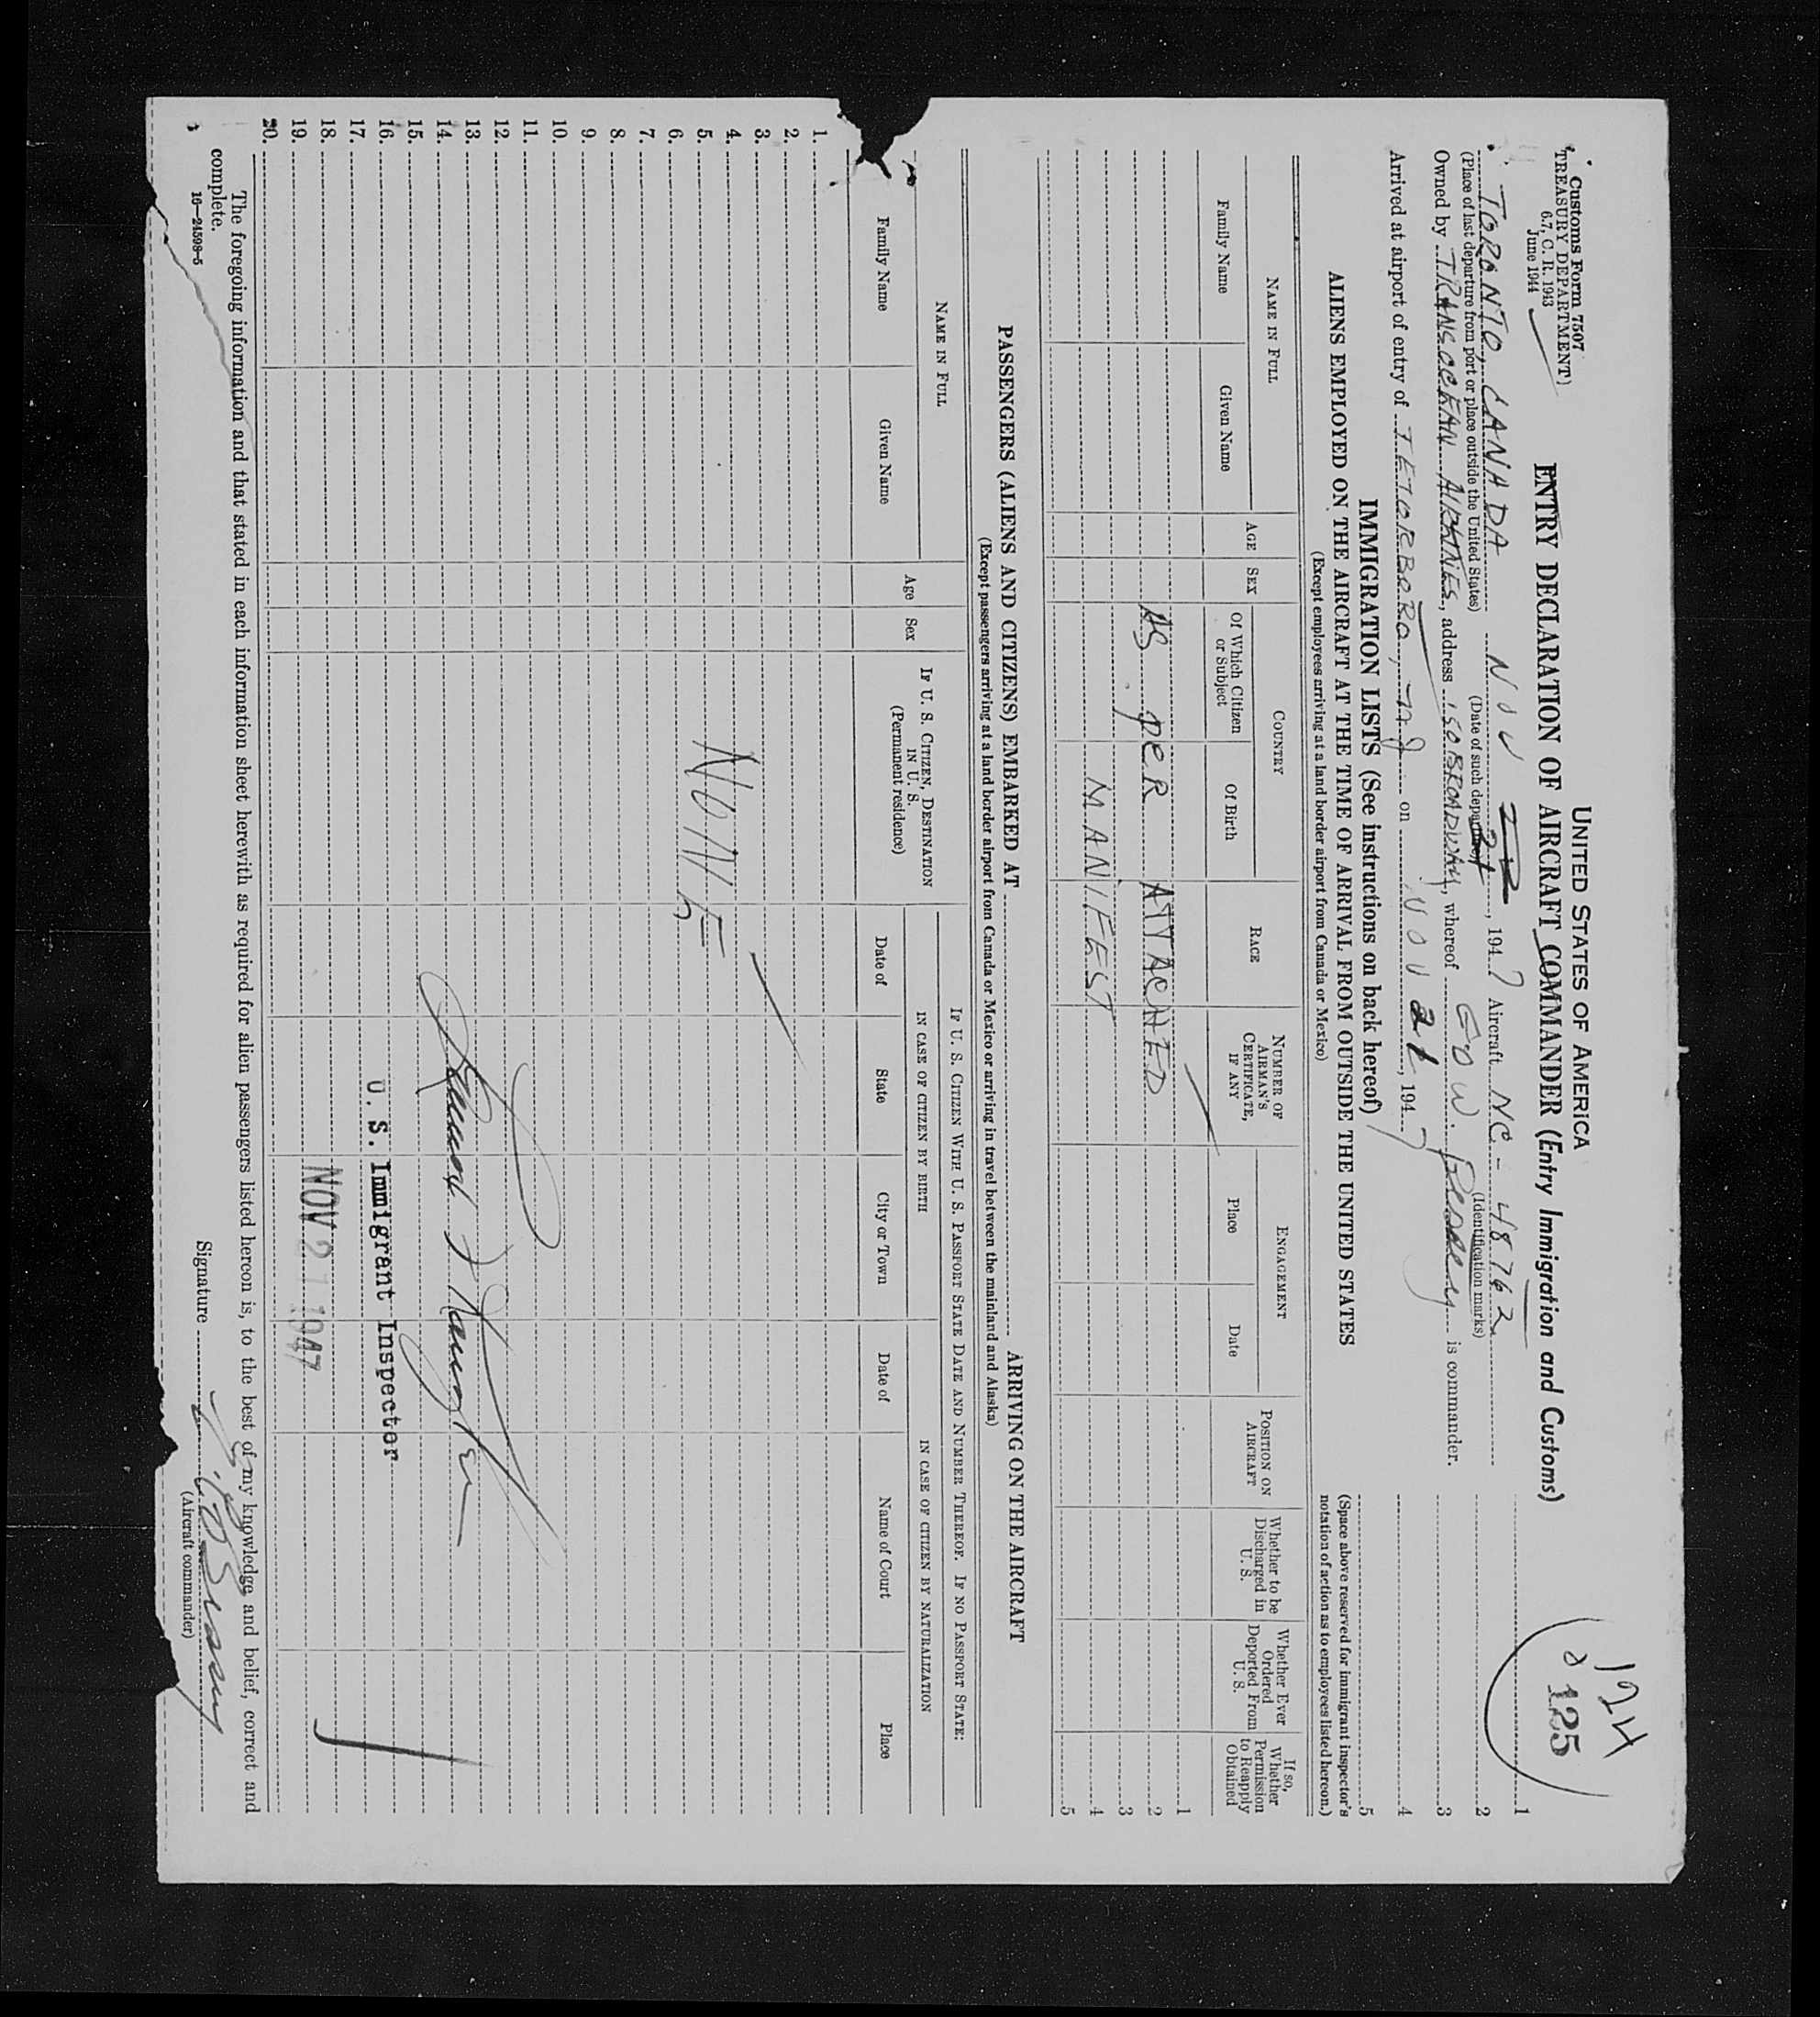 Customs Form 7507
TREASURY DEPARTMENT
6.7, C. R. 1943
June 1944
UNITED STATES OF AMERICA
ENTRY DECLARATION OF AIRCRAFT COMMANDER (Entry Immigration and Customs)
124
125
TORONTO, CANADA NOV 21, 1947 Aircraft NC-48762
(Place of last departure from port or place outside the United States) (Date of such departure) (Identification marks)
Owned by TRANSOCEAN AIRLINES, address 150 BROADWAY, whereof is commander.
Arrived at airport of entry of TETORBORO, NJ on NOV 21, 1947
1
2
3
4
5
(Space above reserved for immigrant inspector's
notation of action as to employees listed hereon.)
IMMIGRATION LISTS (See instructions on back hereof)
ALIENS EMPLOYED ON THE AIRCRAFT AT THE TIME OF ARRIVAL FROM OUTSIDE THE UNITED STATES
(Except employees arriving at a land border airport from Canada or Mexico)
NAME IN FULL
Family Name
Given Name
AGE
SEX
COUNTRY
Of Which Citizen
or Subject
Of Birth
RACE
NUMBER OF
AIRMAN'S
CERTIFICATE,
IF ANY
ENGAGEMENT
Place
Date
POSITION ON
AIRCRAFT
Whether to be
Discharged in
U. S.
Whether Ever
Ordered
Deported From
U. S.
If so,
Whether
Permission
to Reapply
Obtained
1
AS PER ATTACHED 2
3
MANIFEST 4
5
PASSENGERS (ALIENS AND CITIZENS) EMBARKED AT ARRIVING ON THE AIRCRAFT
(Except passengers arriving at a land border airport from Canada or Mexico or arriving in travel between the mainland and Alaska)
NAME IN FULL
Family Name
Given Name
Age
Sex
IF U. S. CITIZEN, DESTINATION
IN U. S.
(Permanent residence)
IF U. S. CITIZEN WITH U. S. PASSPORT STATE DATE AND NUMBER THEREOF. IF NO PASSPORT STATE:
IN CASE OF CITIZEN BY BIRTH
Date of
State
City or Town
IN CASE OF CITIZEN BY NATURALIZATION
Date of
Name of Court
Place
1.
2.
3.
4.
5. NONE
6.
7.
8.
9.
10.
11.
12.
13.
14.
15.
16. U. S. Immigrant Inspector
17.
18. NOV 21 1947
19.
20.
The foregoing information and that stated in each information sheet herewith as required for alien passengers listed hereon is, to the best of my knowledge and belief, correct and
complete.
16—24598-5
Signature
(Aircraft commander)